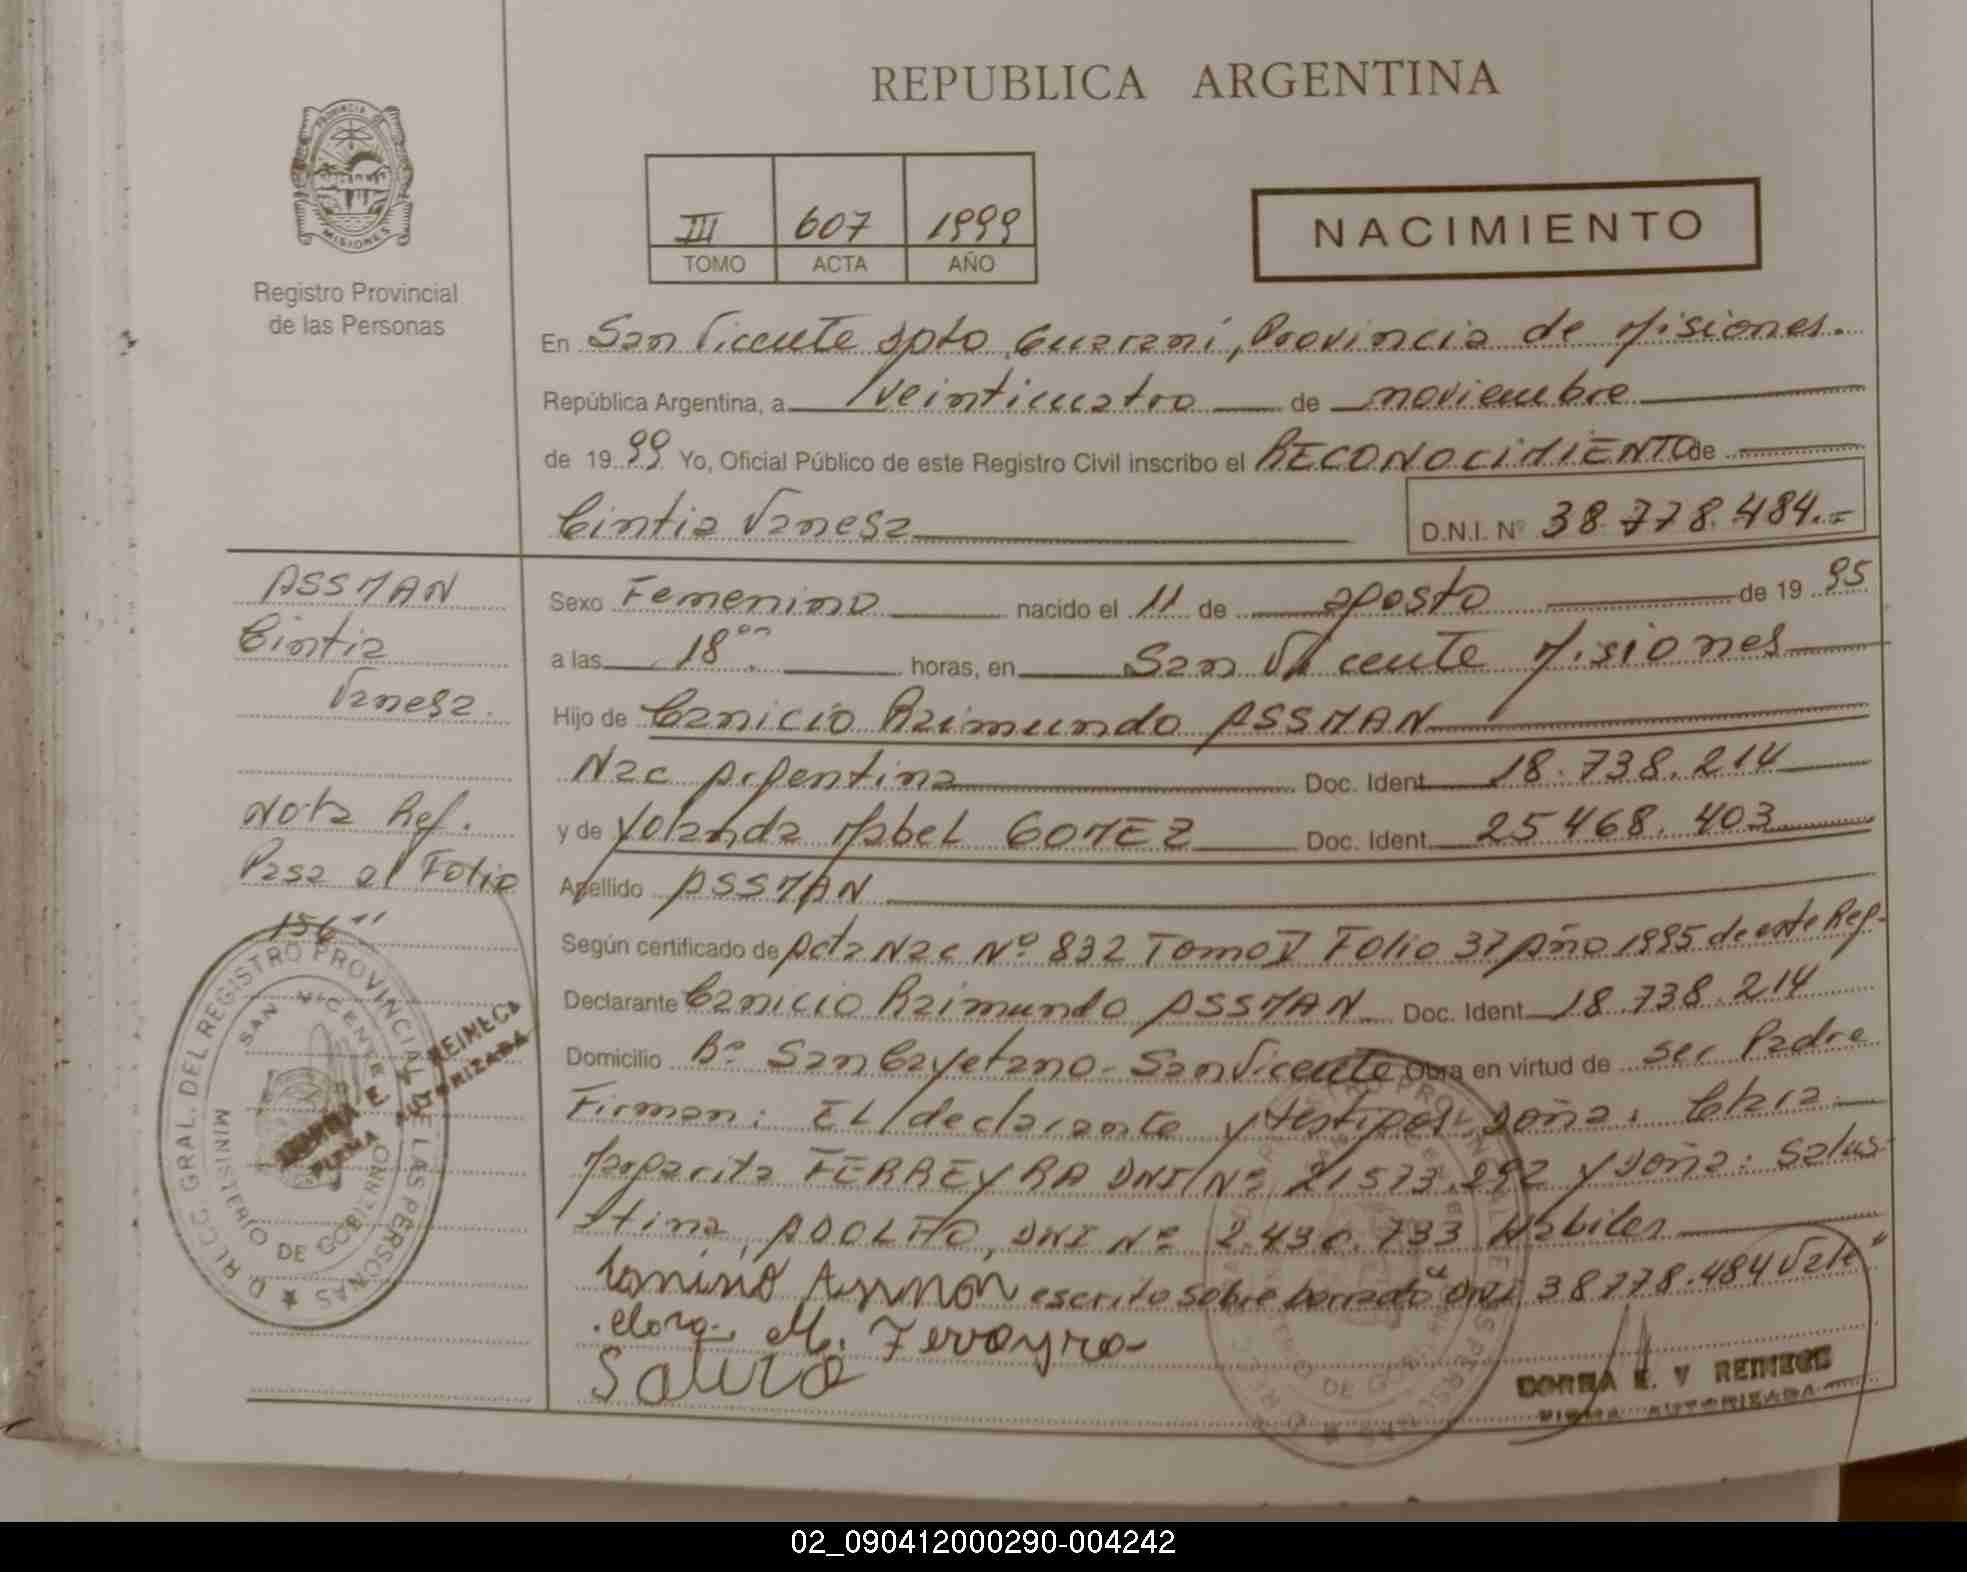 REPUBLICA ARGENTINA
PROVINCIA DE
MISIONES
Registro Provincial
de las Personas
III 607 1999
TOMO ACTA AÑO
NACIMIENTO
En San Vicente Dpto Guaraní, Provincia de Misiones.
República Argentina, a veinticuatro de noviembre
de 1999 Yo, Oficial Público de este Registro Civil inscribo el RECONOCIMIENTO de
Cintia Vanesa D.N.I. Nº 38.778.484.-
ASSMAN
Cintia
Vanesa.
Nota Ref.
Pasa al Folio
156"
Sexo Femenino nacido el 11 de agosto de 1995
a las 18 horas, en San Vicente Misiones
Hijo de Canicio Raimundo ASSMAN
Nac Argentina Doc. Ident. 18.738.214
y de Yolanda Mabel GOMEZ Doc. Ident. 25.468.403
Apellido ASSMAN
Según certificado de Acta Nac Nº 832 Tomo V Folio 37 Año 1995 de este Reg.
Declarante Canicio Raimundo ASSMAN Doc. Ident. 18.738.214
Domicilio Bº San Cayetano - San Vicente Obra en virtud de ser Padre
Firman: El declarante y testigos, Doña: Clara
Margarita FERREYRA DNI Nº 21573.292 y Doña: Salus-
tina, ADOLFO, DNI Nº 2.430.733 Hábiles
escrito sobre borrado "DNI 38778.484 Vale"
Clara M. Ferreyra
D. RL. C.C. GRAL. DEL REGISTRO PROVINCIAL DE LAS PERSONAS
SAN VICENTE
MINISTERIO DE GOBIERNO
FIRMA AUTORIZADA
DORRA E. V REINECK
FIRMA AUTORIZADA
02_090412000290-004242